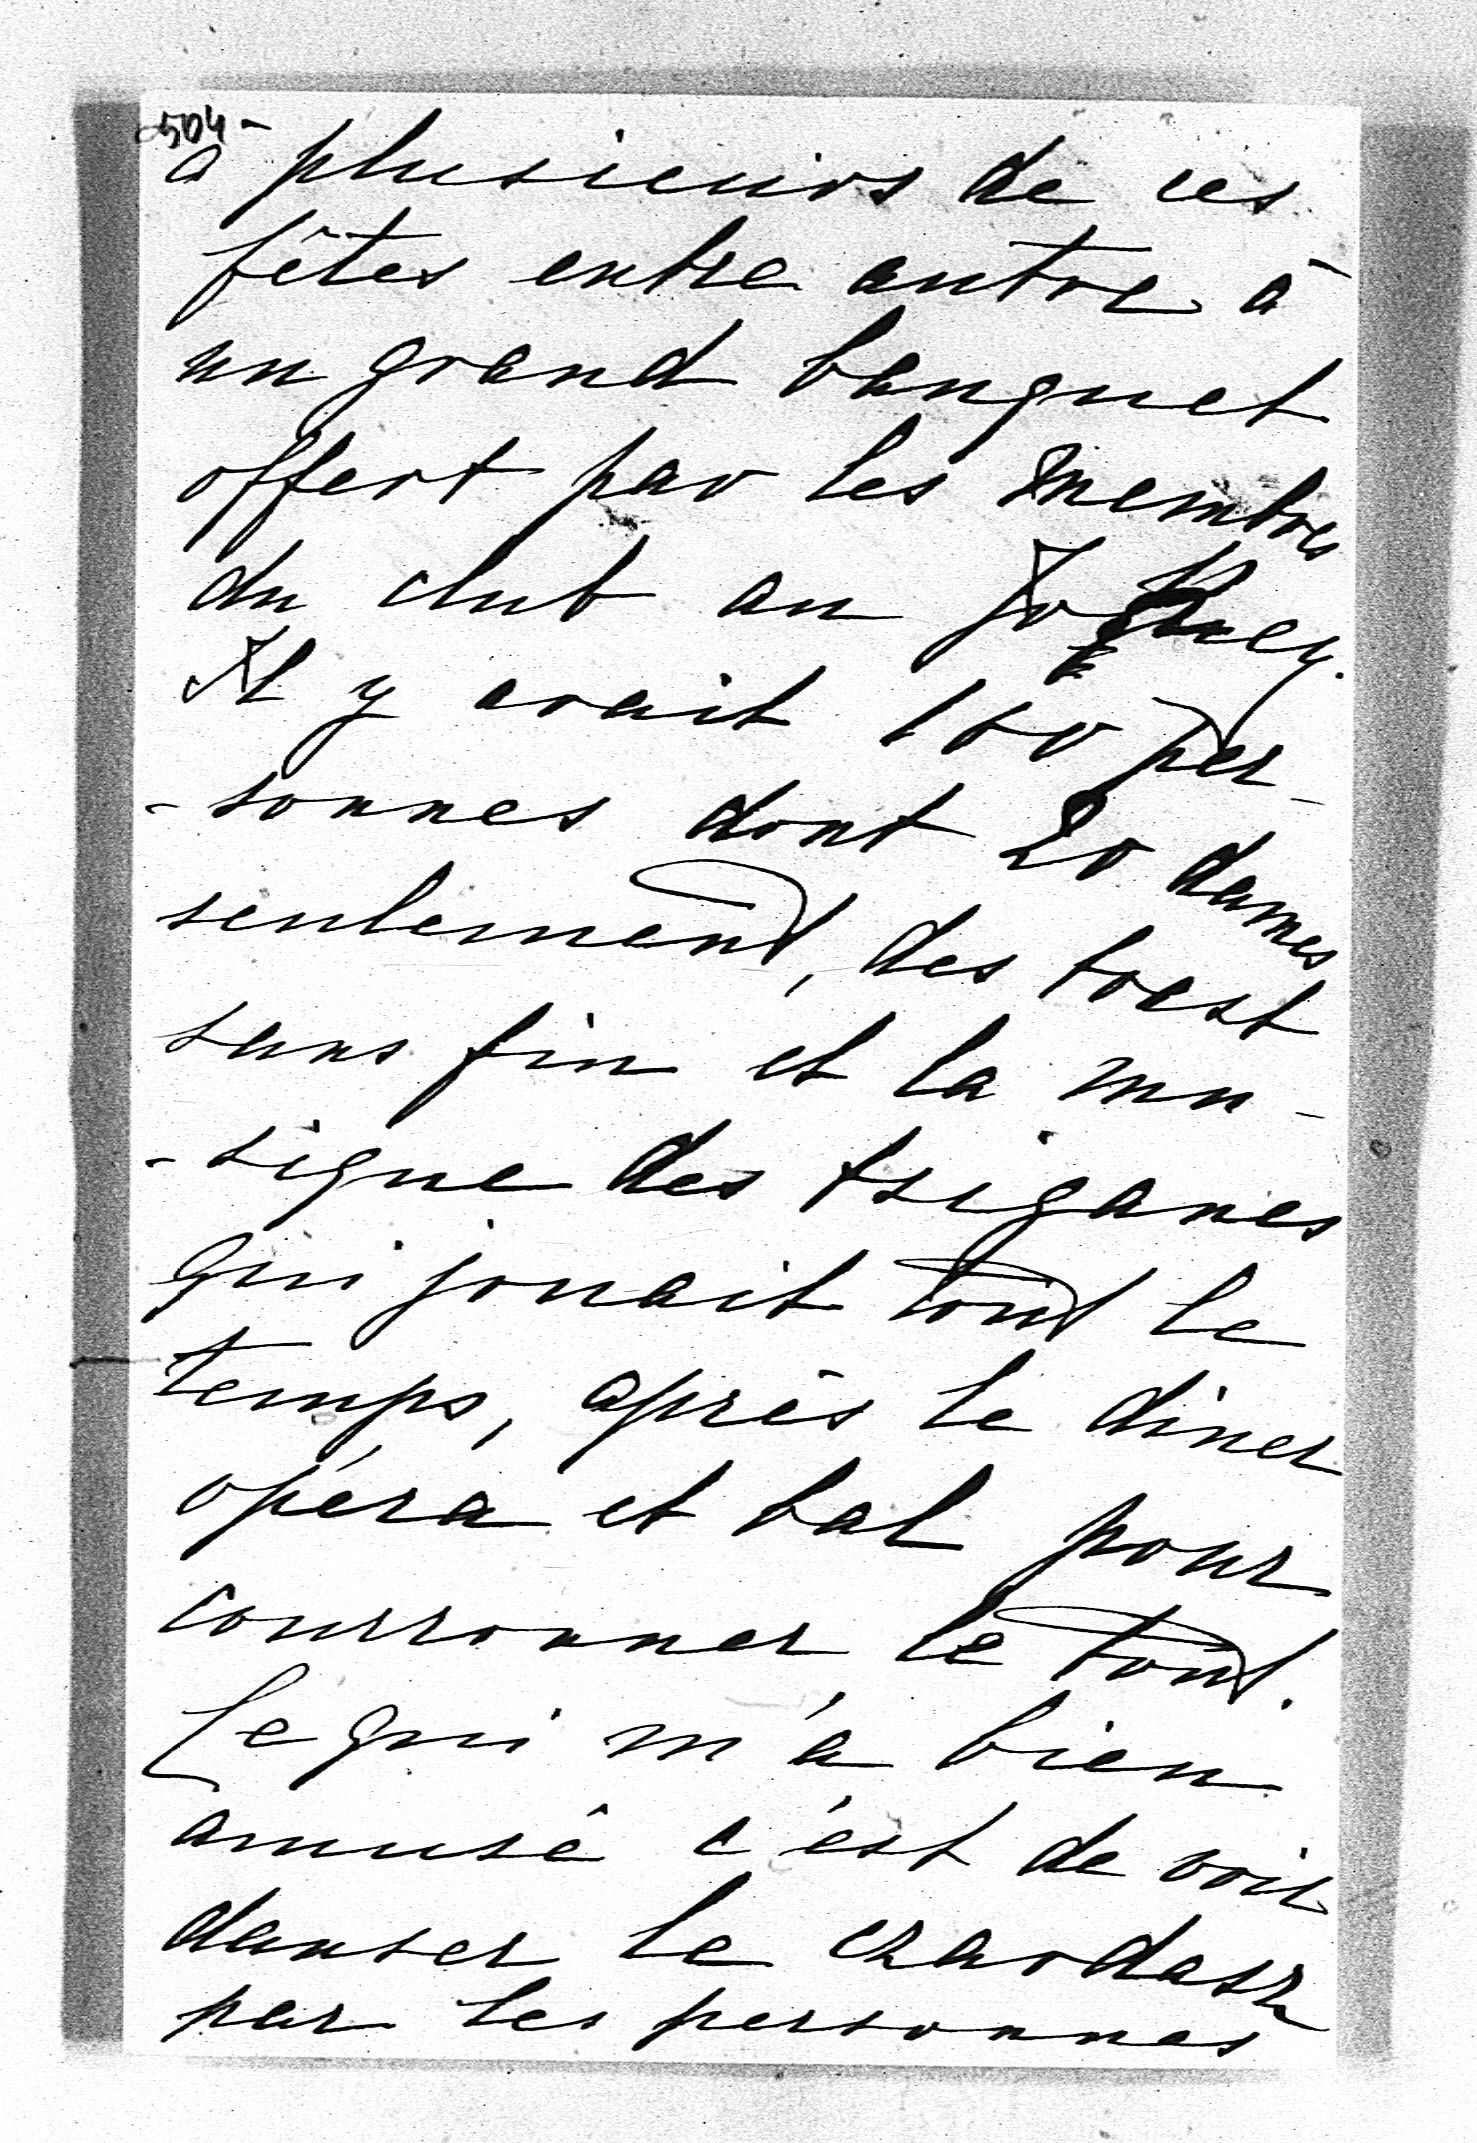 504-
à plusieurs de ces
fêtes entre autre à
un grand banquet
offert par les membres
du club au Jockey.
Il y avait 150 per-
-sonnes dont 20 dames
seulement, des toast
sans fin et la mu-
-sique des tsiganes
qui jouait tout le
temps, après le diner
opéra et bal pour
courronner le tout.
Ce qui m'a bien
amusé c'est de voir
danser le czardasz
par les personnes